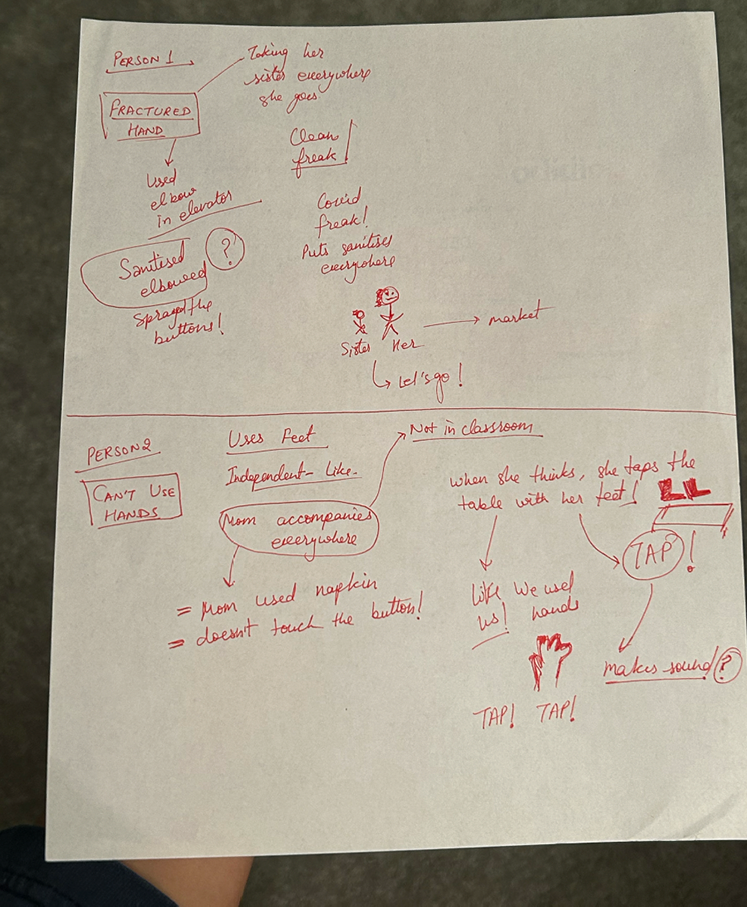 PERSON 1
FRACTURED
HAND
Used
elbow
in elevator
Sanitised
elboweed
?
Sprayed the
buttons!
Taking her
sister everywhere
she goes
Clean
freak!
Covid
freak!
Puts sanitiser
everywhere
Sister Her
market
Let's go!
PERSON 2
CAN'T USE
HANDS
Uses Feet
Independent- Like
Mom accompanies
everywhere
= Mom used napkin
= doesn't touch the button!
Not in classroom
when she thinks, she taps the
table with her feet!
TAP!
makes sound?
Like
us!
We used
hands
TAP! TAP!